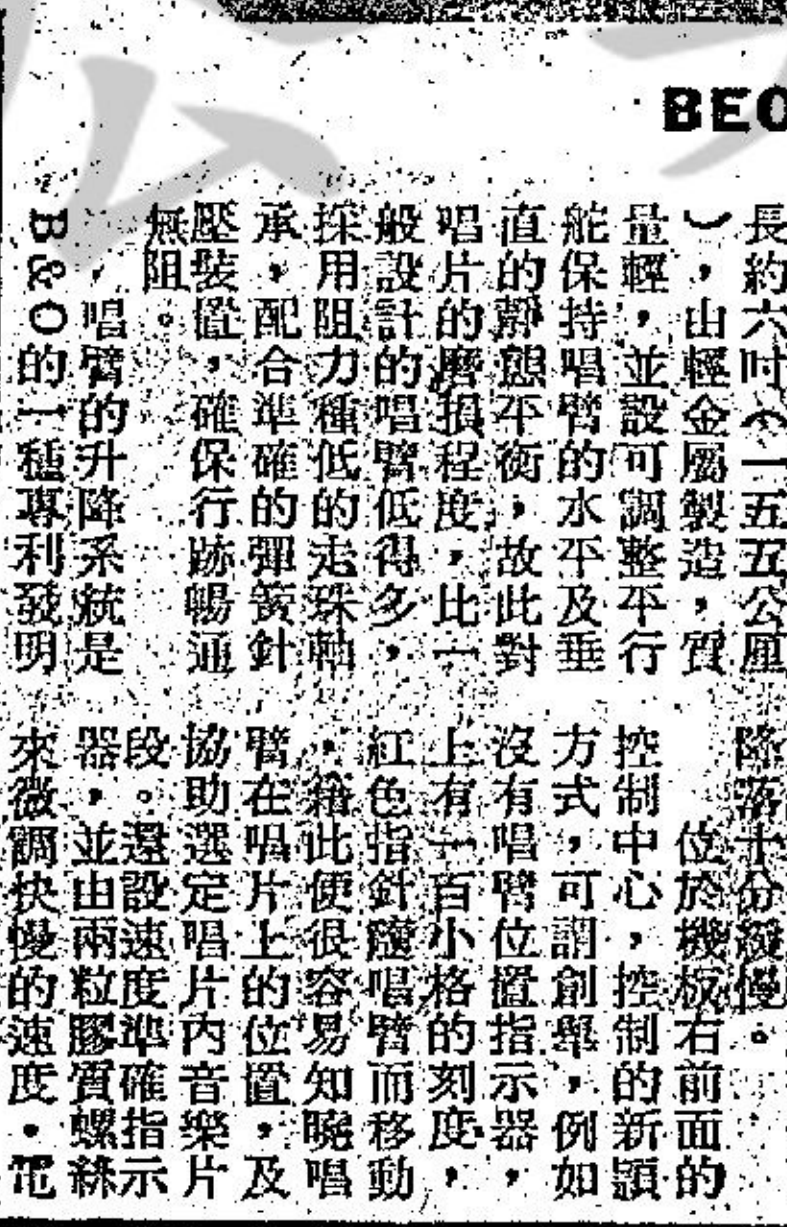 BEO
長約六吋（一五五公厘
），由輕金屬製造，質
量輕，並設可調整平行
舵保持唱臂的水平及垂
直的靜態平衡，故此對
唱片的磨損程度，比一
般設計的唱臂低得多，
採用阻力種低的走珠軸
承，配合準確的彈簧針
壓裝置，確保行跡暢通
無阻。
唱臂的升降系統是
B&O的一種專利發明
降落十分緩慢。
位於機板右前面的
控制中心，控制的新穎
方式，可謂創舉，例如
沒有唱臂位置指示器，
上有一百小格的刻度，
紅色指針隨唱臂而移動
，藉此便很容易知曉唱
臂在唱片上的位置，及
協助選定唱片內音樂片
段。還設速度準確指示
器，並由兩粒膠質螺絲
來微調快慢的速度．電